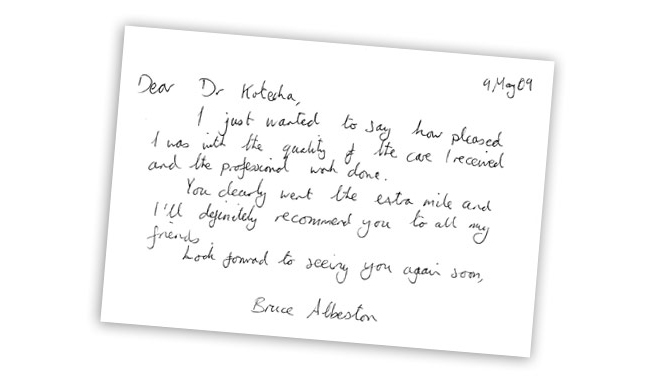 9 May 09
Dear Dr Kotecha,
I just wanted to say how pleased
I was with the quality of the care I received
and the professional work done.
You clearly went the extra mile and
I'll definitely recommend you to all my
friends.
Look forward to seeing you again soon,
Bruce Albeston